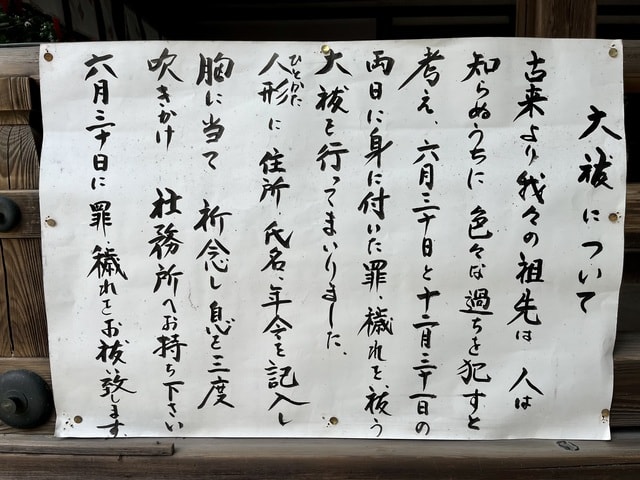 大祓について
古来より我々の祖先は 人は
知らぬうちに 色々な過ちを犯すと
考え、六月三十日と十二月三十一日の
両日に身に付いた罪、穢れを、祓う
大祓を行ってまいりました、
人形に 住所、氏名、年令を記入し
ひとかた
胸に当て 祈念し 息を三度
吹きかけ 社務所へお持ち下さい
六月三十日に罪、穢れをお祓い致します、